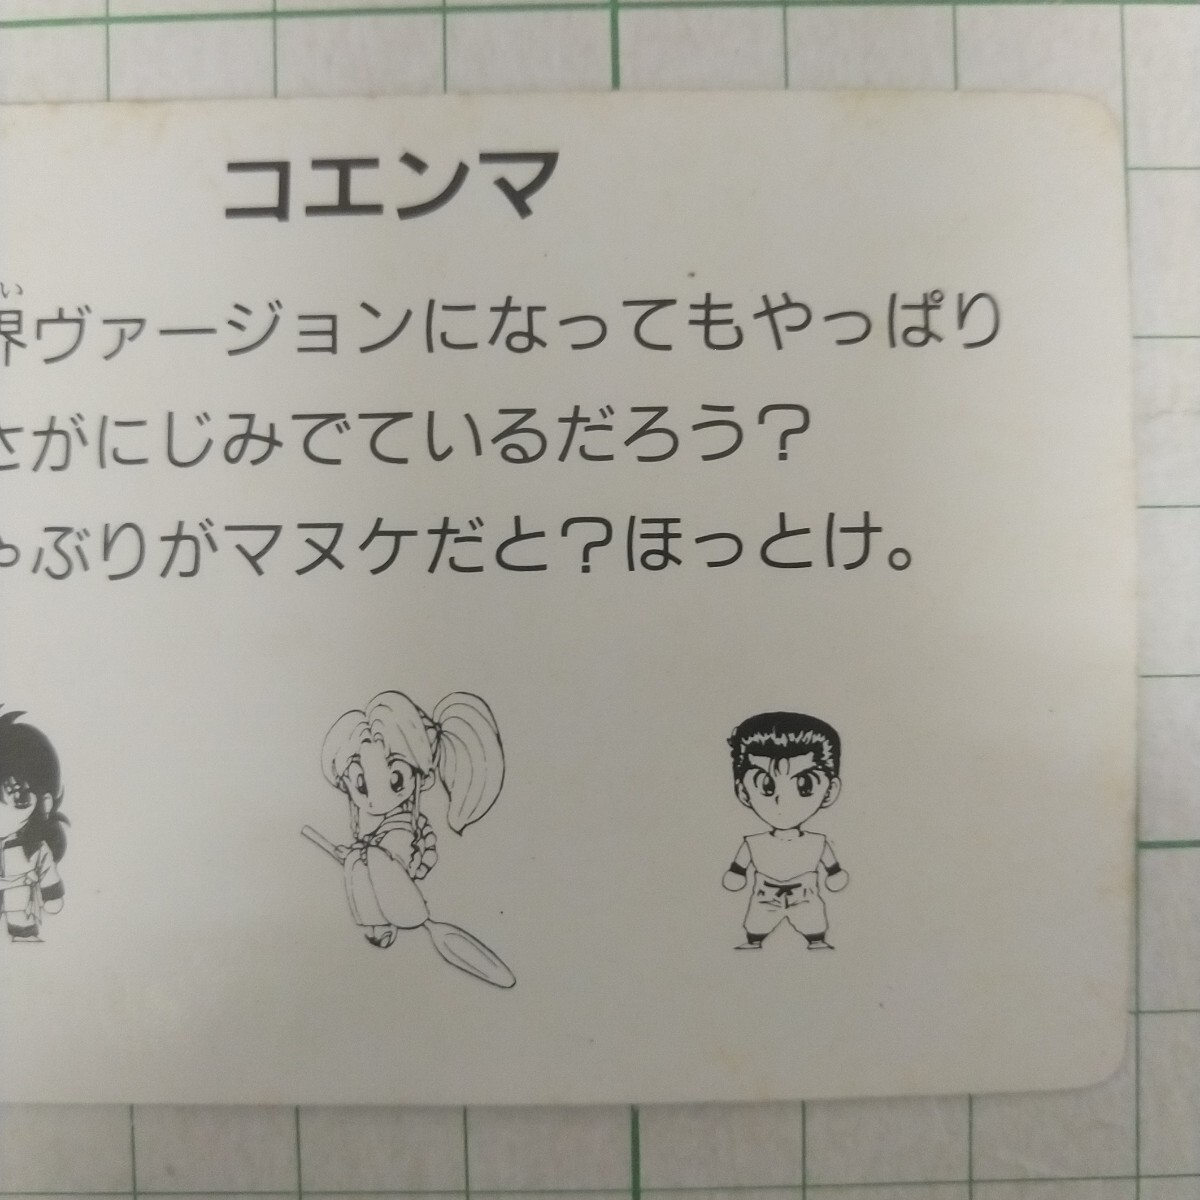 コエンマ
い
界ヴァージョンになってもやっぱり
さがにじみでているだろう？
ゃぶりがマヌケだと？ほっとけ。